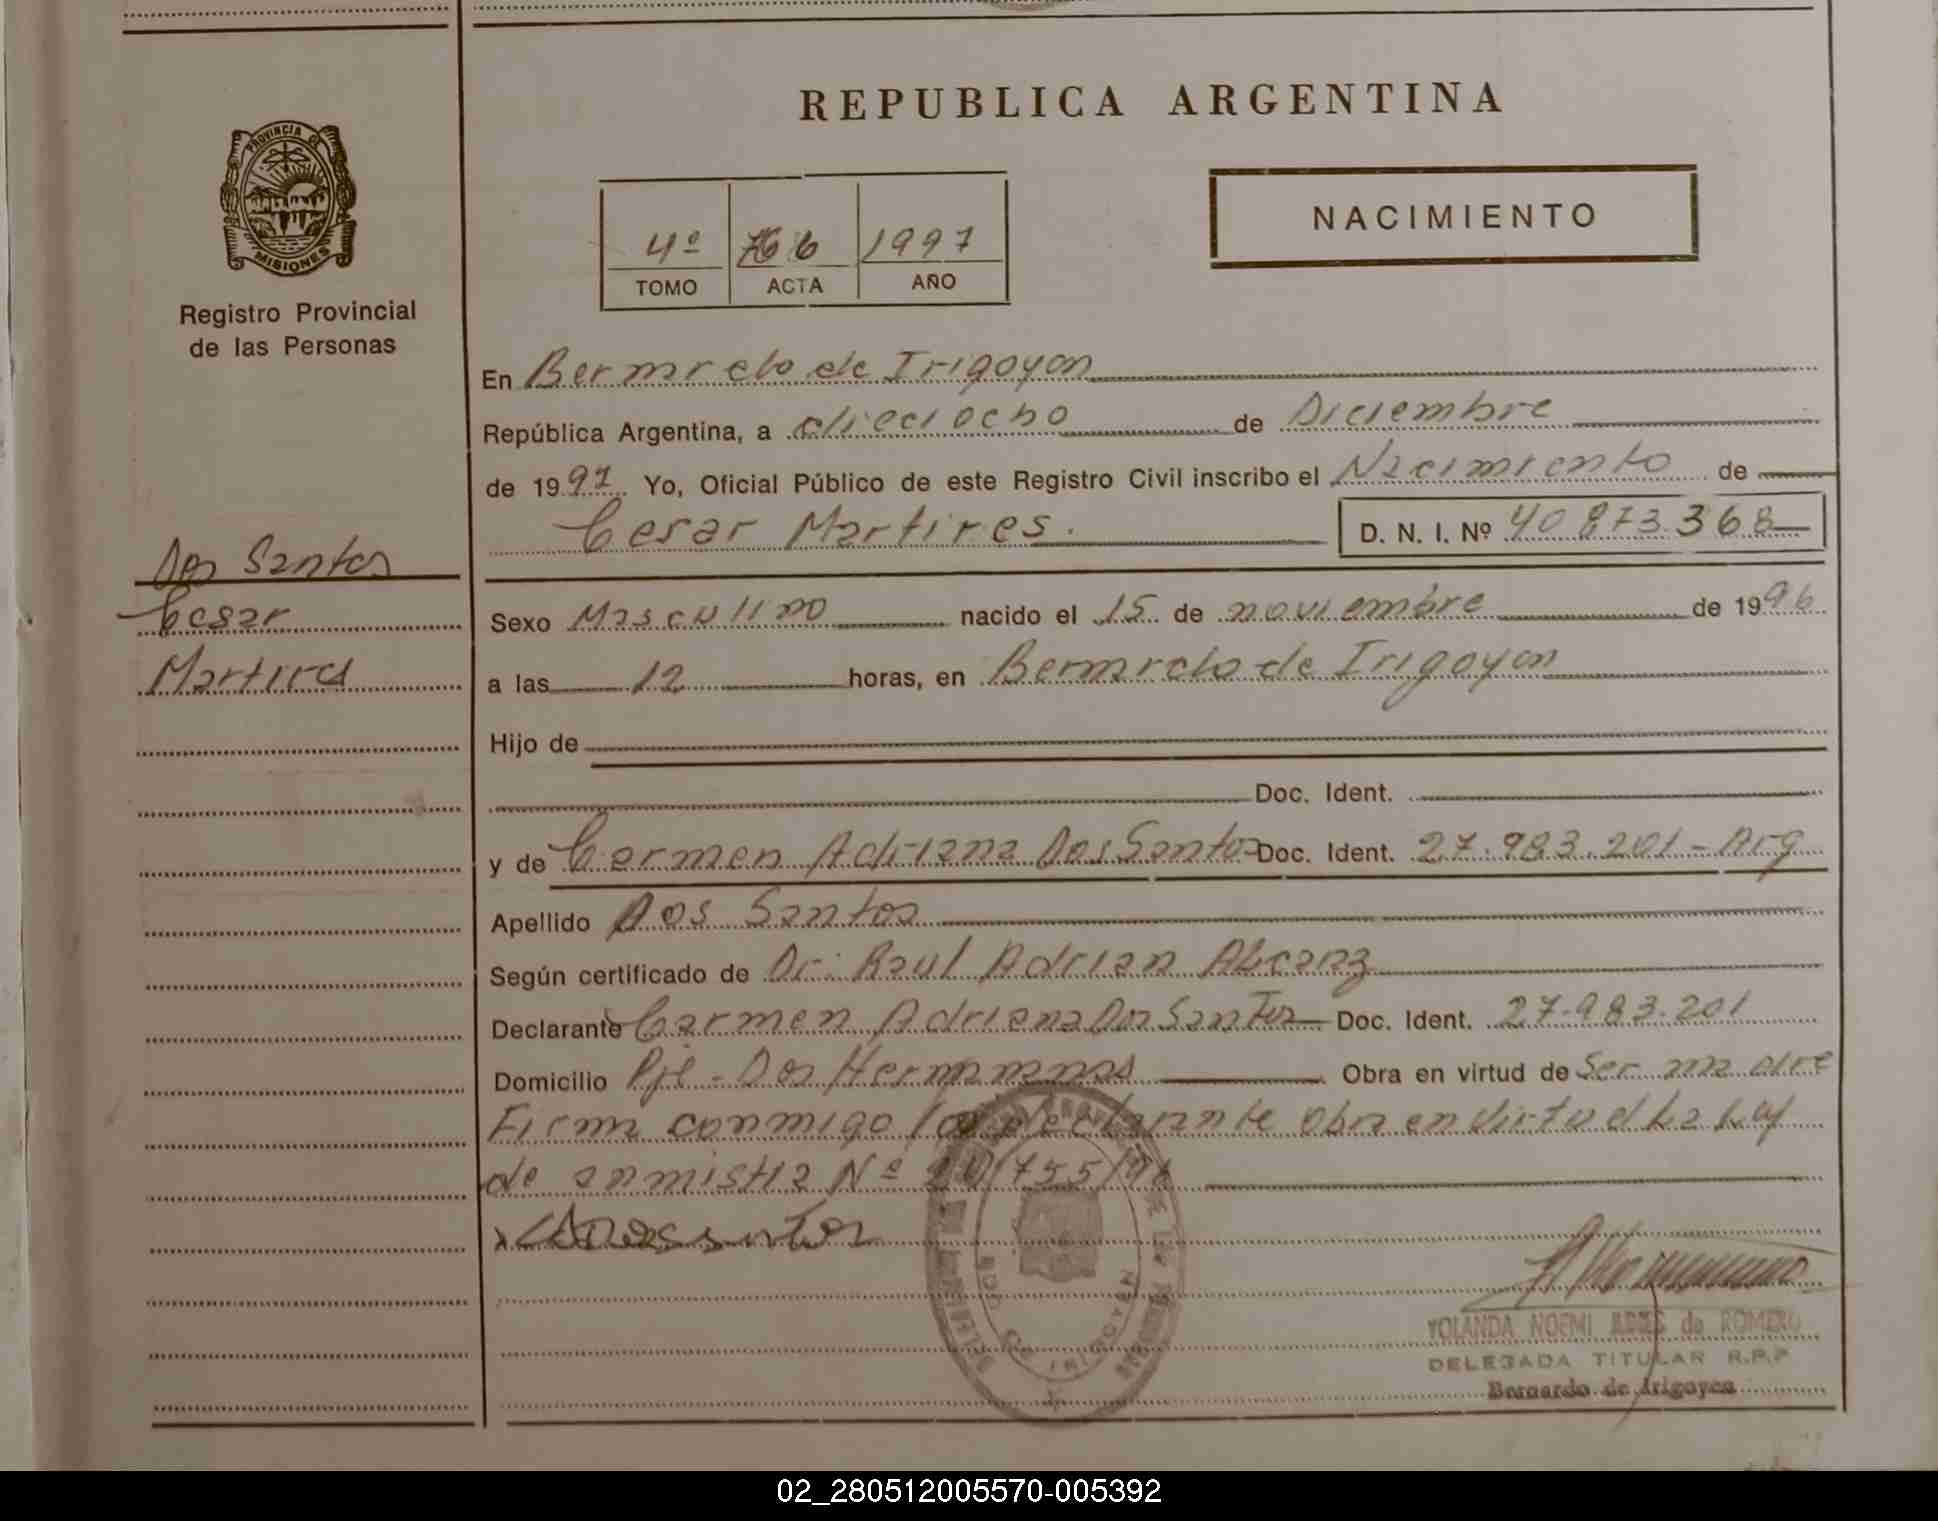 REPUBLICA ARGENTINA
PROVINCIA DE MISIONES
Registro Provincial
de las Personas
4º 1997
TOMO ACTA AÑO
NACIMIENTO
En Bernardo de Irigoyen
República Argentina, a dieciocho de Diciembre
de 1997 Yo, Oficial Público de este Registro Civil inscribo el Nacimiento de
Cesar Martires. D. N. I. Nº 40.873.368
Dos Santos
Cesar
Martires
Sexo Masculino nacido el 15 de noviembre de 1996
a las 12 horas, en Bernardo de Irigoyen
Hijo de
Doc. Ident.
y de Carmen Adriana Dos Santos Doc. Ident. 27.983.201 - Arg
Apellido Dos Santos
Según certificado de Dr. Raul Adrian
Declarante Carmen Adriana Dos Santos Doc. Ident. 27.983.201
Domicilio Pje - Dos Hermanas Obra en virtud de Ser madre
Firma conmigo la declarante Obra en virtud La Ley
de anmistia Nº
YOLANDA NOEMI de ROMERO
DELEGADA TITULAR R.P.P
Bernardo de Irigoyen
02_280512005570-005392